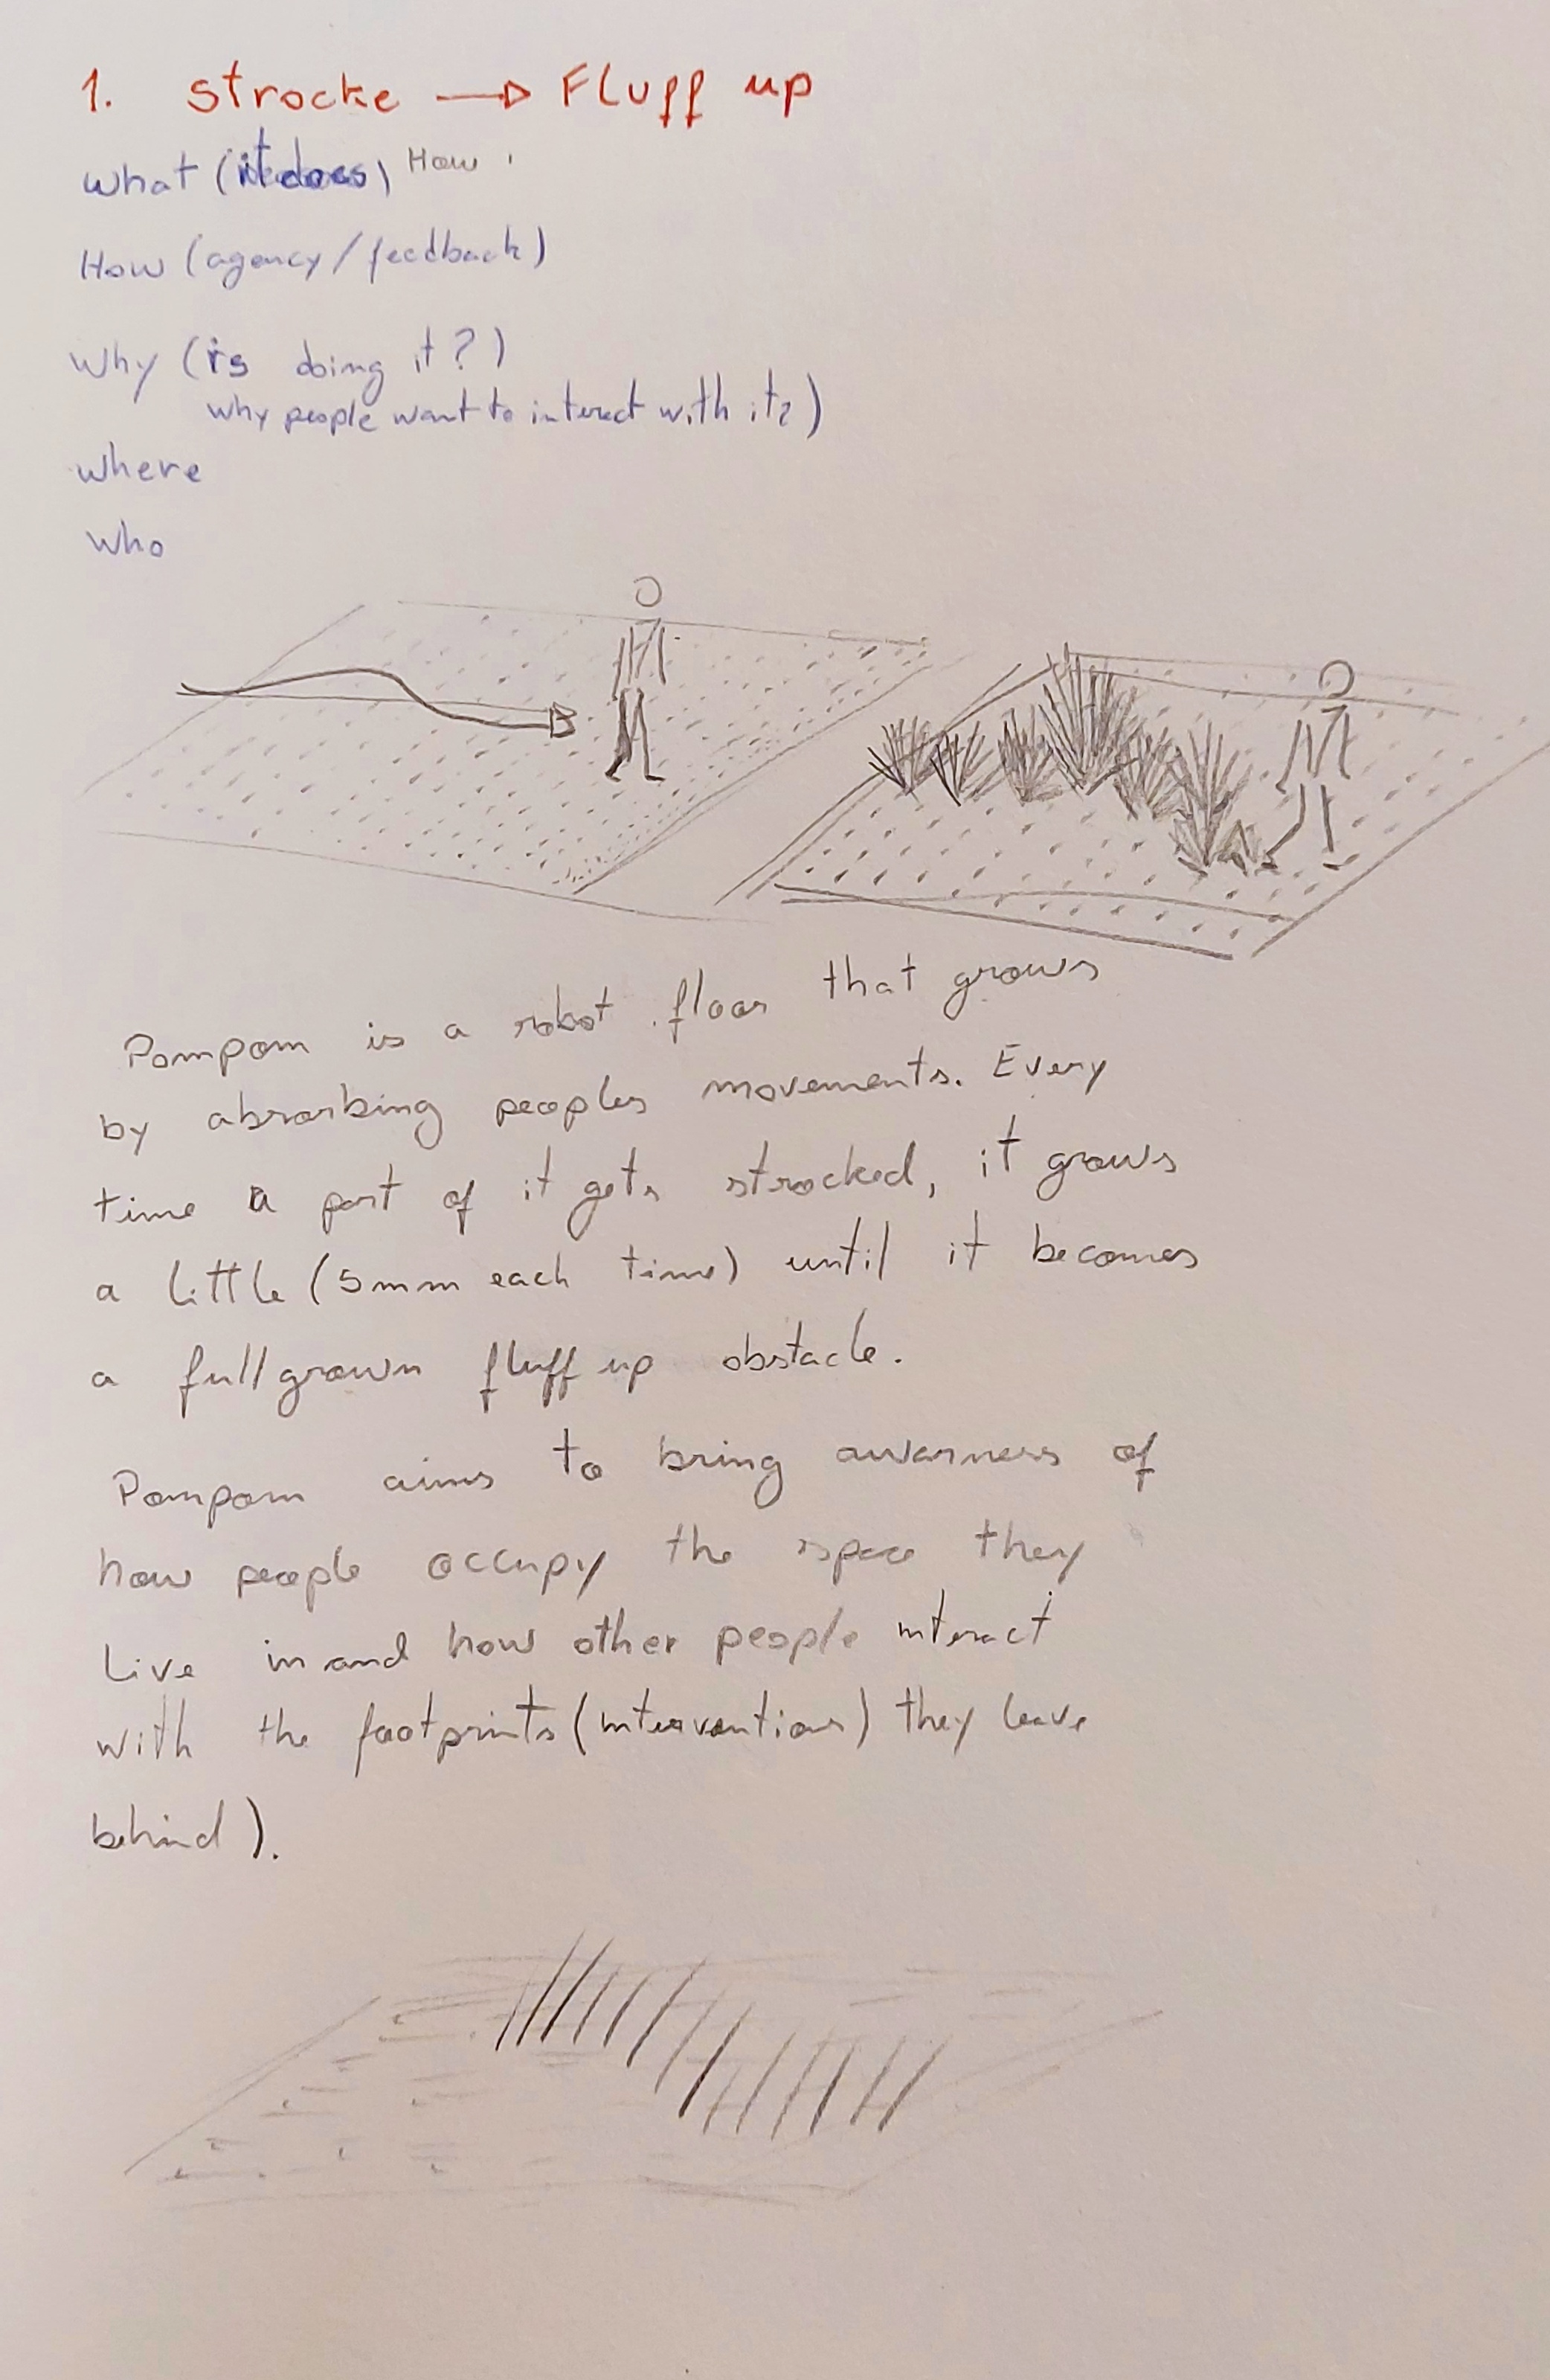 1. strocke → Fluff up
What (it does) How
How (agency/feedback)
Why (is doing it?)
why people want to interact with it?)
where
who
Pompom is a robot floor that grows
by absorbing peoples movements. Every
time a part of it gets strocked, it grows
a little (5mm each time) until it becomes
a full grown fluff up obstacle.
Pompom aims to bring awarness of
how people occupy the space they
Live in and how other people interact
with the footprints (interventions) they leave
behind).